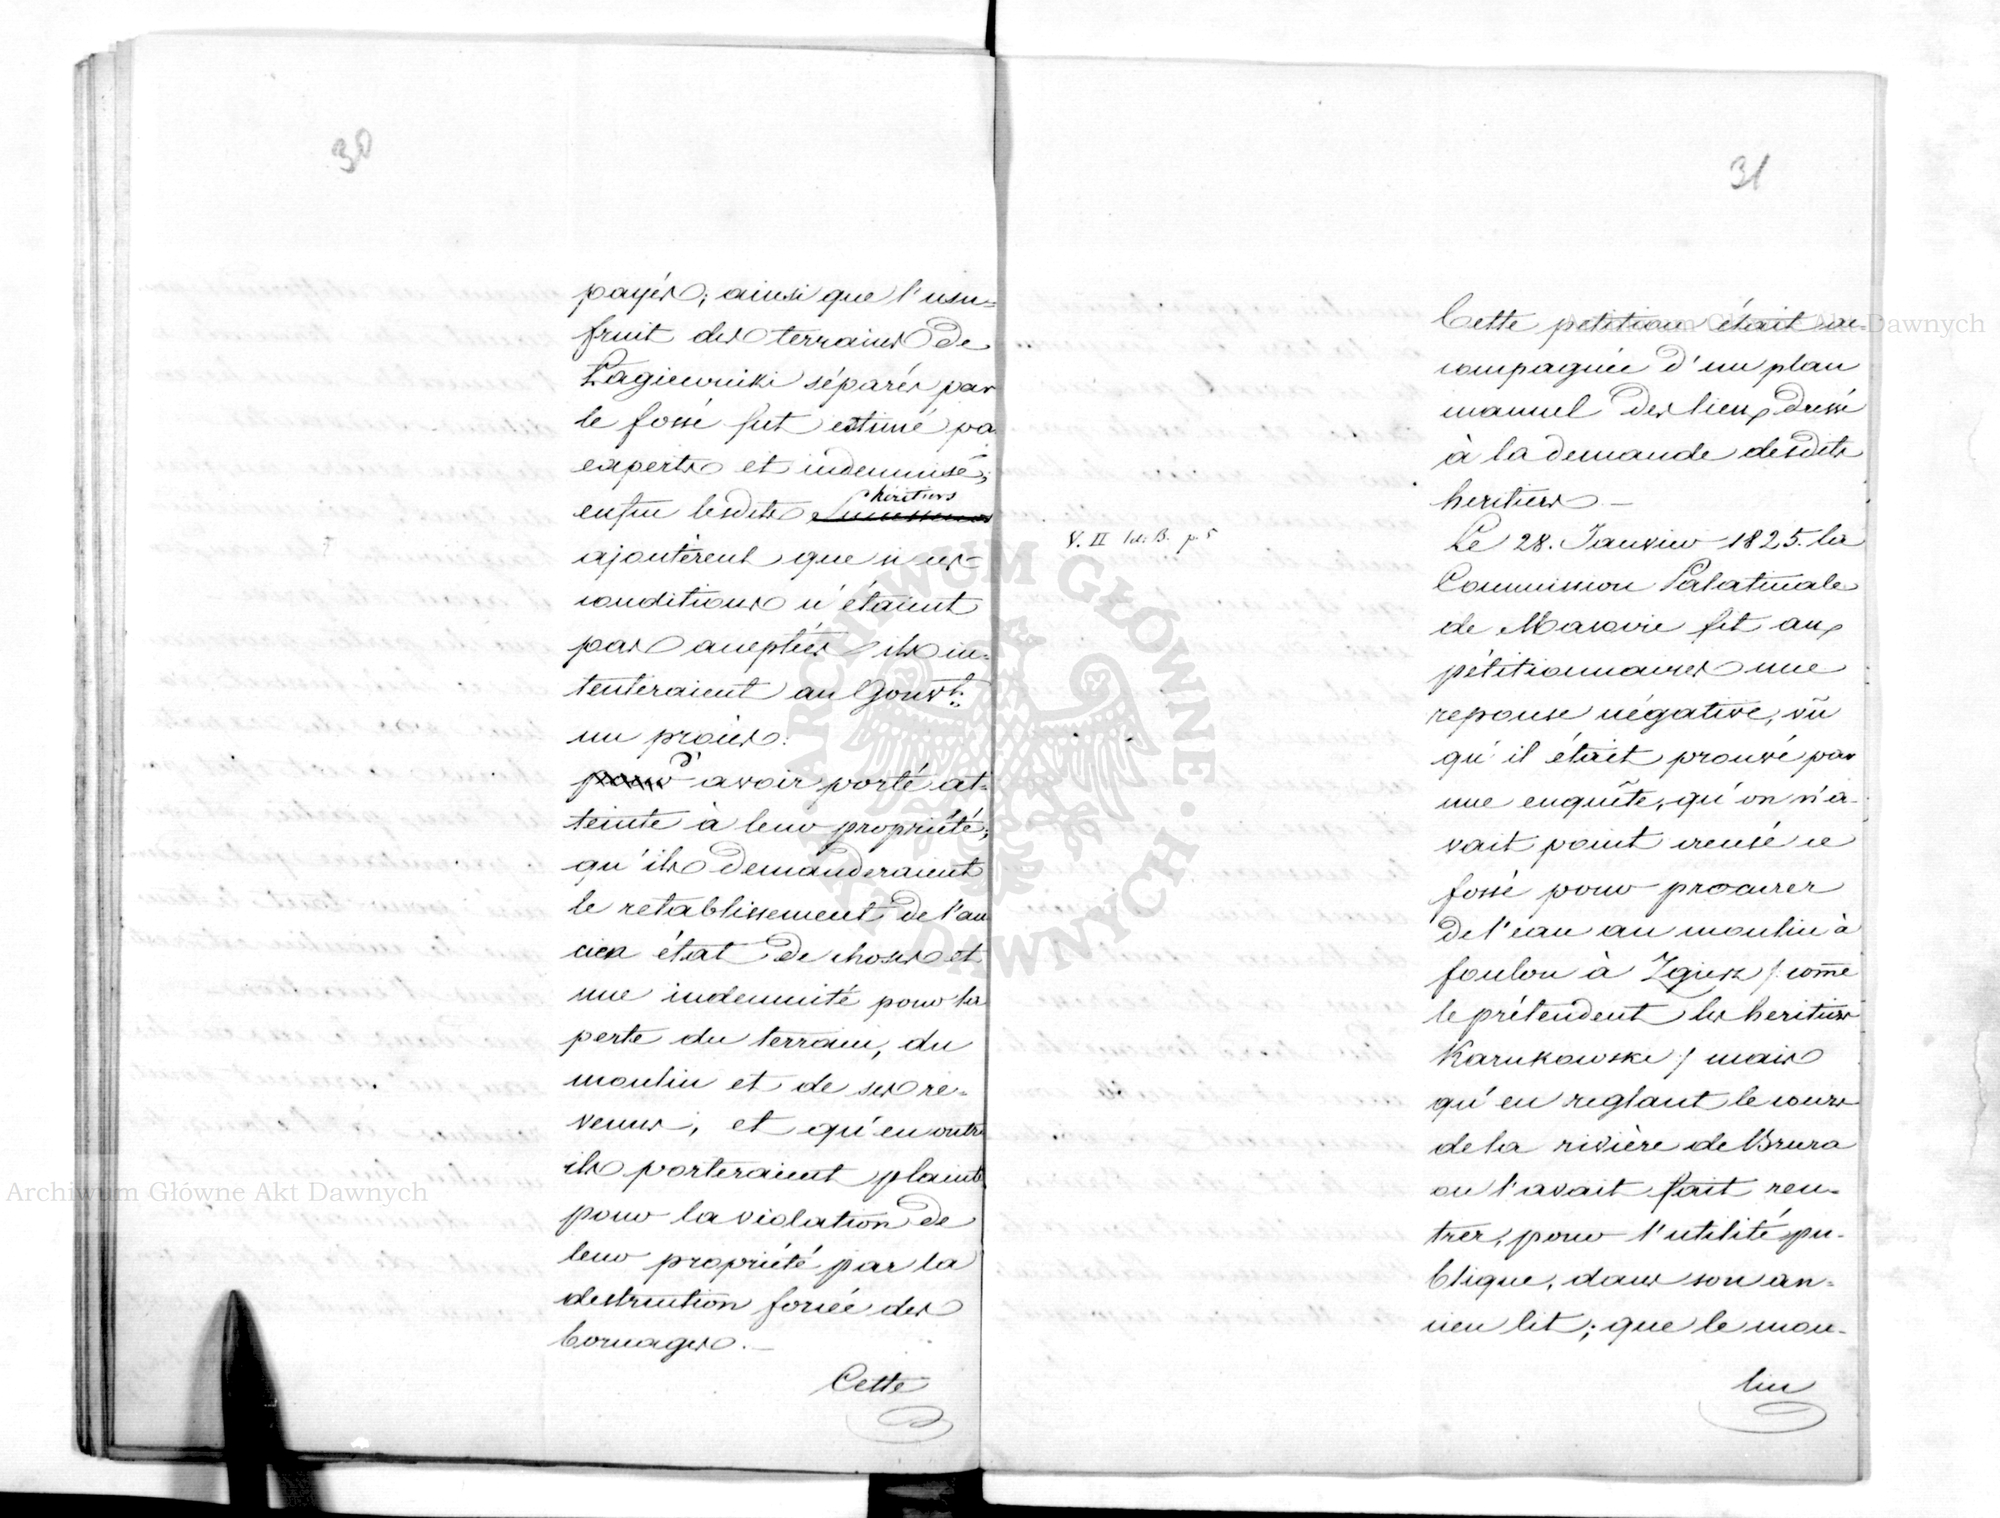 30
payés; ainsi que l'usu=
fruit des terrains de
Łagiewniki séparés par
le fossé fut estimé pa
experts et indemnisé;
héritiers
enfin lesdits
ajoutèrent que si ces=
conditions n'étaient
pas acceptées ils in=
tenteraient au Gouvt.
un procès:
d'
pour avoir porté at=
teinte à leur propriété;
qu'ils demanderaient
le retablissement de l'an
cien état de choses et
une indemnité pour la
perte du terrain, du
moulin et de ses re=
venus; et qu'en outre
ils porteraient plainte
pour la violation de
leur propriété par la
destruction forcée des
bornages.—
Cette
31
Cette petition était ac=
compagnée d'un plan
manuel des lieux dressé
à la demande desdits
heritiers.—
V. II lit: B. p. 5
Le 28. Janvier 1825. la
Commission Palatinale
de Masovie fit aux
pétitionnaires une
reponse négative, vû
qu'il était prouvé par
une enquête, qu'on n'a=
vait point creusé ce
fossé pour procurer
de l'eau au moulin à
foulon à Zgierz /: come
le prétendent les heritiers
Karnkowski :/ mais
qu'en reglant le cours
de la rivière de Bzura
on l'avait fait ren=
trer, pour l'utilité pu=
blique, dans son an=
cien lit; que le mou=
lin
Archiwum Główne Akt Dawnych
Archiwum Główne Akt Dawnych
ARCHIWUM GŁÓWNE · AKT DAWNYCH ·